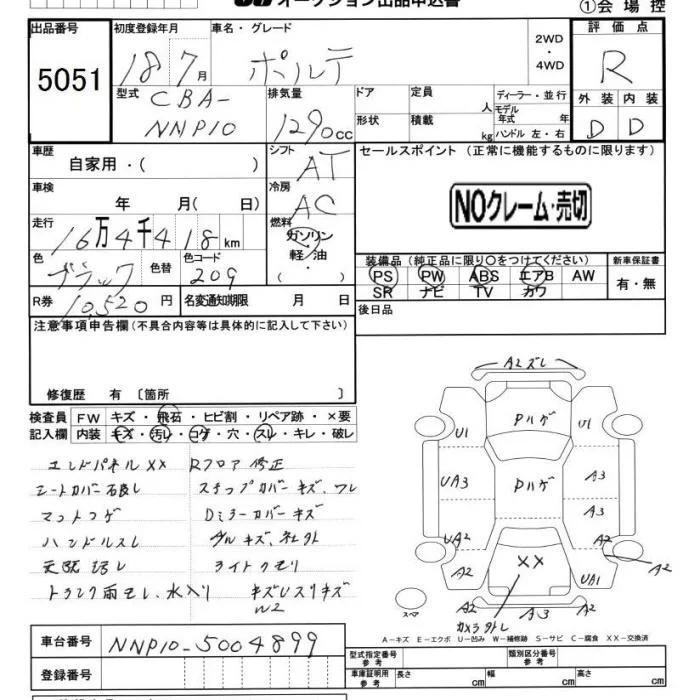 オークション出品申込書
①会場控
出品番号
5051
初度登録年月
18 7月
車名・グレード
ポルテ
2WD
・
4WD
評価点
R
外装 内装
D D
型式
CBA-
NNP10
排気量
1290cc
ドア
定員
人
形状
積載
kg
ディーラー・並行
モデル
年式 年
ハンドル 左・右
車歴
自家用・( )
シフト
AT
車検
年 月( 日)
冷房
AC
走行
16万4千418km
燃料
ガソリン
軽油
・( )
色
ブラック
色替
色コード
209
R券
10,520円
名変通知期限 月 日
セールスポイント (正常に機能するものに限ります)
NOクレーム・売切
装備品(純正品に限り○をつけてください)
PS PW ABS エアB AW
SR ナビ TV カワ
新車保証書
有・無
後日品
注意事項申告欄(不具合内容等は具体的に記入して下さい)
修復歴 有 〔箇所 〕
検査員 FW キズ・飛石・ヒビ割・リペア跡・×要
記入欄 内装 キズ・汚レ・コゲ・穴・スレ・キレ・破レ
エンドパネルXX Rフロア修正
シートカバー
マットコゲ Dミラーカバーキズ
ハンドルスレ
ライトクモリ
トランク雨モレ、水入り
W2
A2ズレ
Pハゲ
U1 U1
UA3 Pハゲ A3
A3
UA2 XX A2
A2 UA1 A2
A2 A3 A2
スペア
カメラ
A－キズ E－エクボ U－凹み W－補修跡 S－サビ C－腐食 XX－交換済
車台番号 NNP10-5004899
登録番号
型式指定番号
参考
類別区分番号
参考
車庫証明用
参考
長さ cm 幅 cm 高さ cm